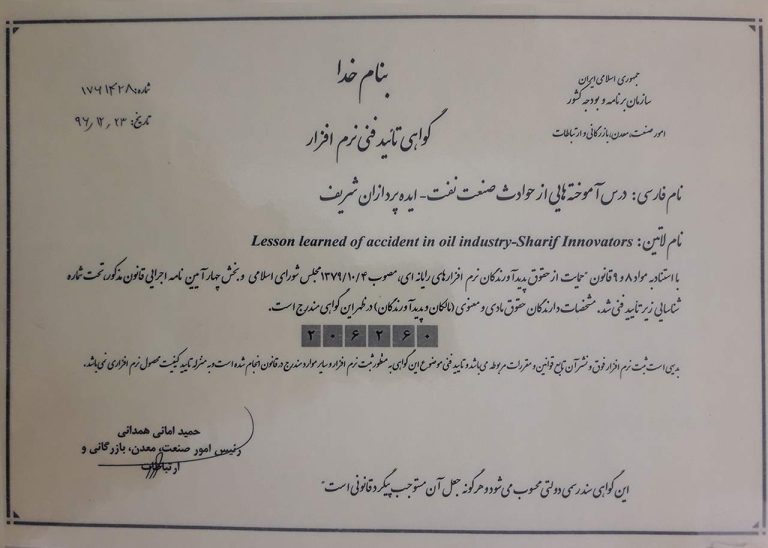 بنام خدا
جمهوری اسلامی ایران
سازمان برنامه و بودجه کشور
امور صنعت، معدن، بازرگانی و ارتباطات
شماره: ۱۷۶۱۴۲۸
تاریخ: ۹۶/۱۲/۲۳
گواهی تائید فنی نرم افزار
نام فارسی: درس آموخته هایی از حوادث صنعت نفت - ایده پردازان شریف
نام لاتین: Lesson learned of accident in oil industry-Sharif Innovators
با استناد به مواد ۸ و ۹ قانون "حمایت از حقوق پدیدآورندگان نرم افزارهای رایانه ای، مصوب ۱۳۷۹/۱۰/۴ مجلس شورای اسلامی و بخش چهار آیین نامه اجرایی قانون مذکور، تحت شماره
شناسایی زیر تأیید فنی شد. مشخصات دارندگان حقوق مادی و معنوی (مالکان و پدیدآورندگان) در ظهر این گواهی مندرج است.
۲۰۶۲۶۰
بدیهی است ثبت نرم افزار فوق و نشر آن تابع قوانین و مقررات مربوطه می باشد و تایید فنی موضوع این گواهی به منظور ثبت نرم افزار و سایر موارد مندرج در قانون انجام شده است و به منزله تایید کیفیت محصول نرم افزاری نمی باشد.
حمید امانی همدانی
رئیس امور صنعت، معدن، بازرگانی و
ارتباطات
این گواهی سند رسمی دولتی محسوب می شود و هرگونه جعل آن مستوجب پیگرد قانونی است"